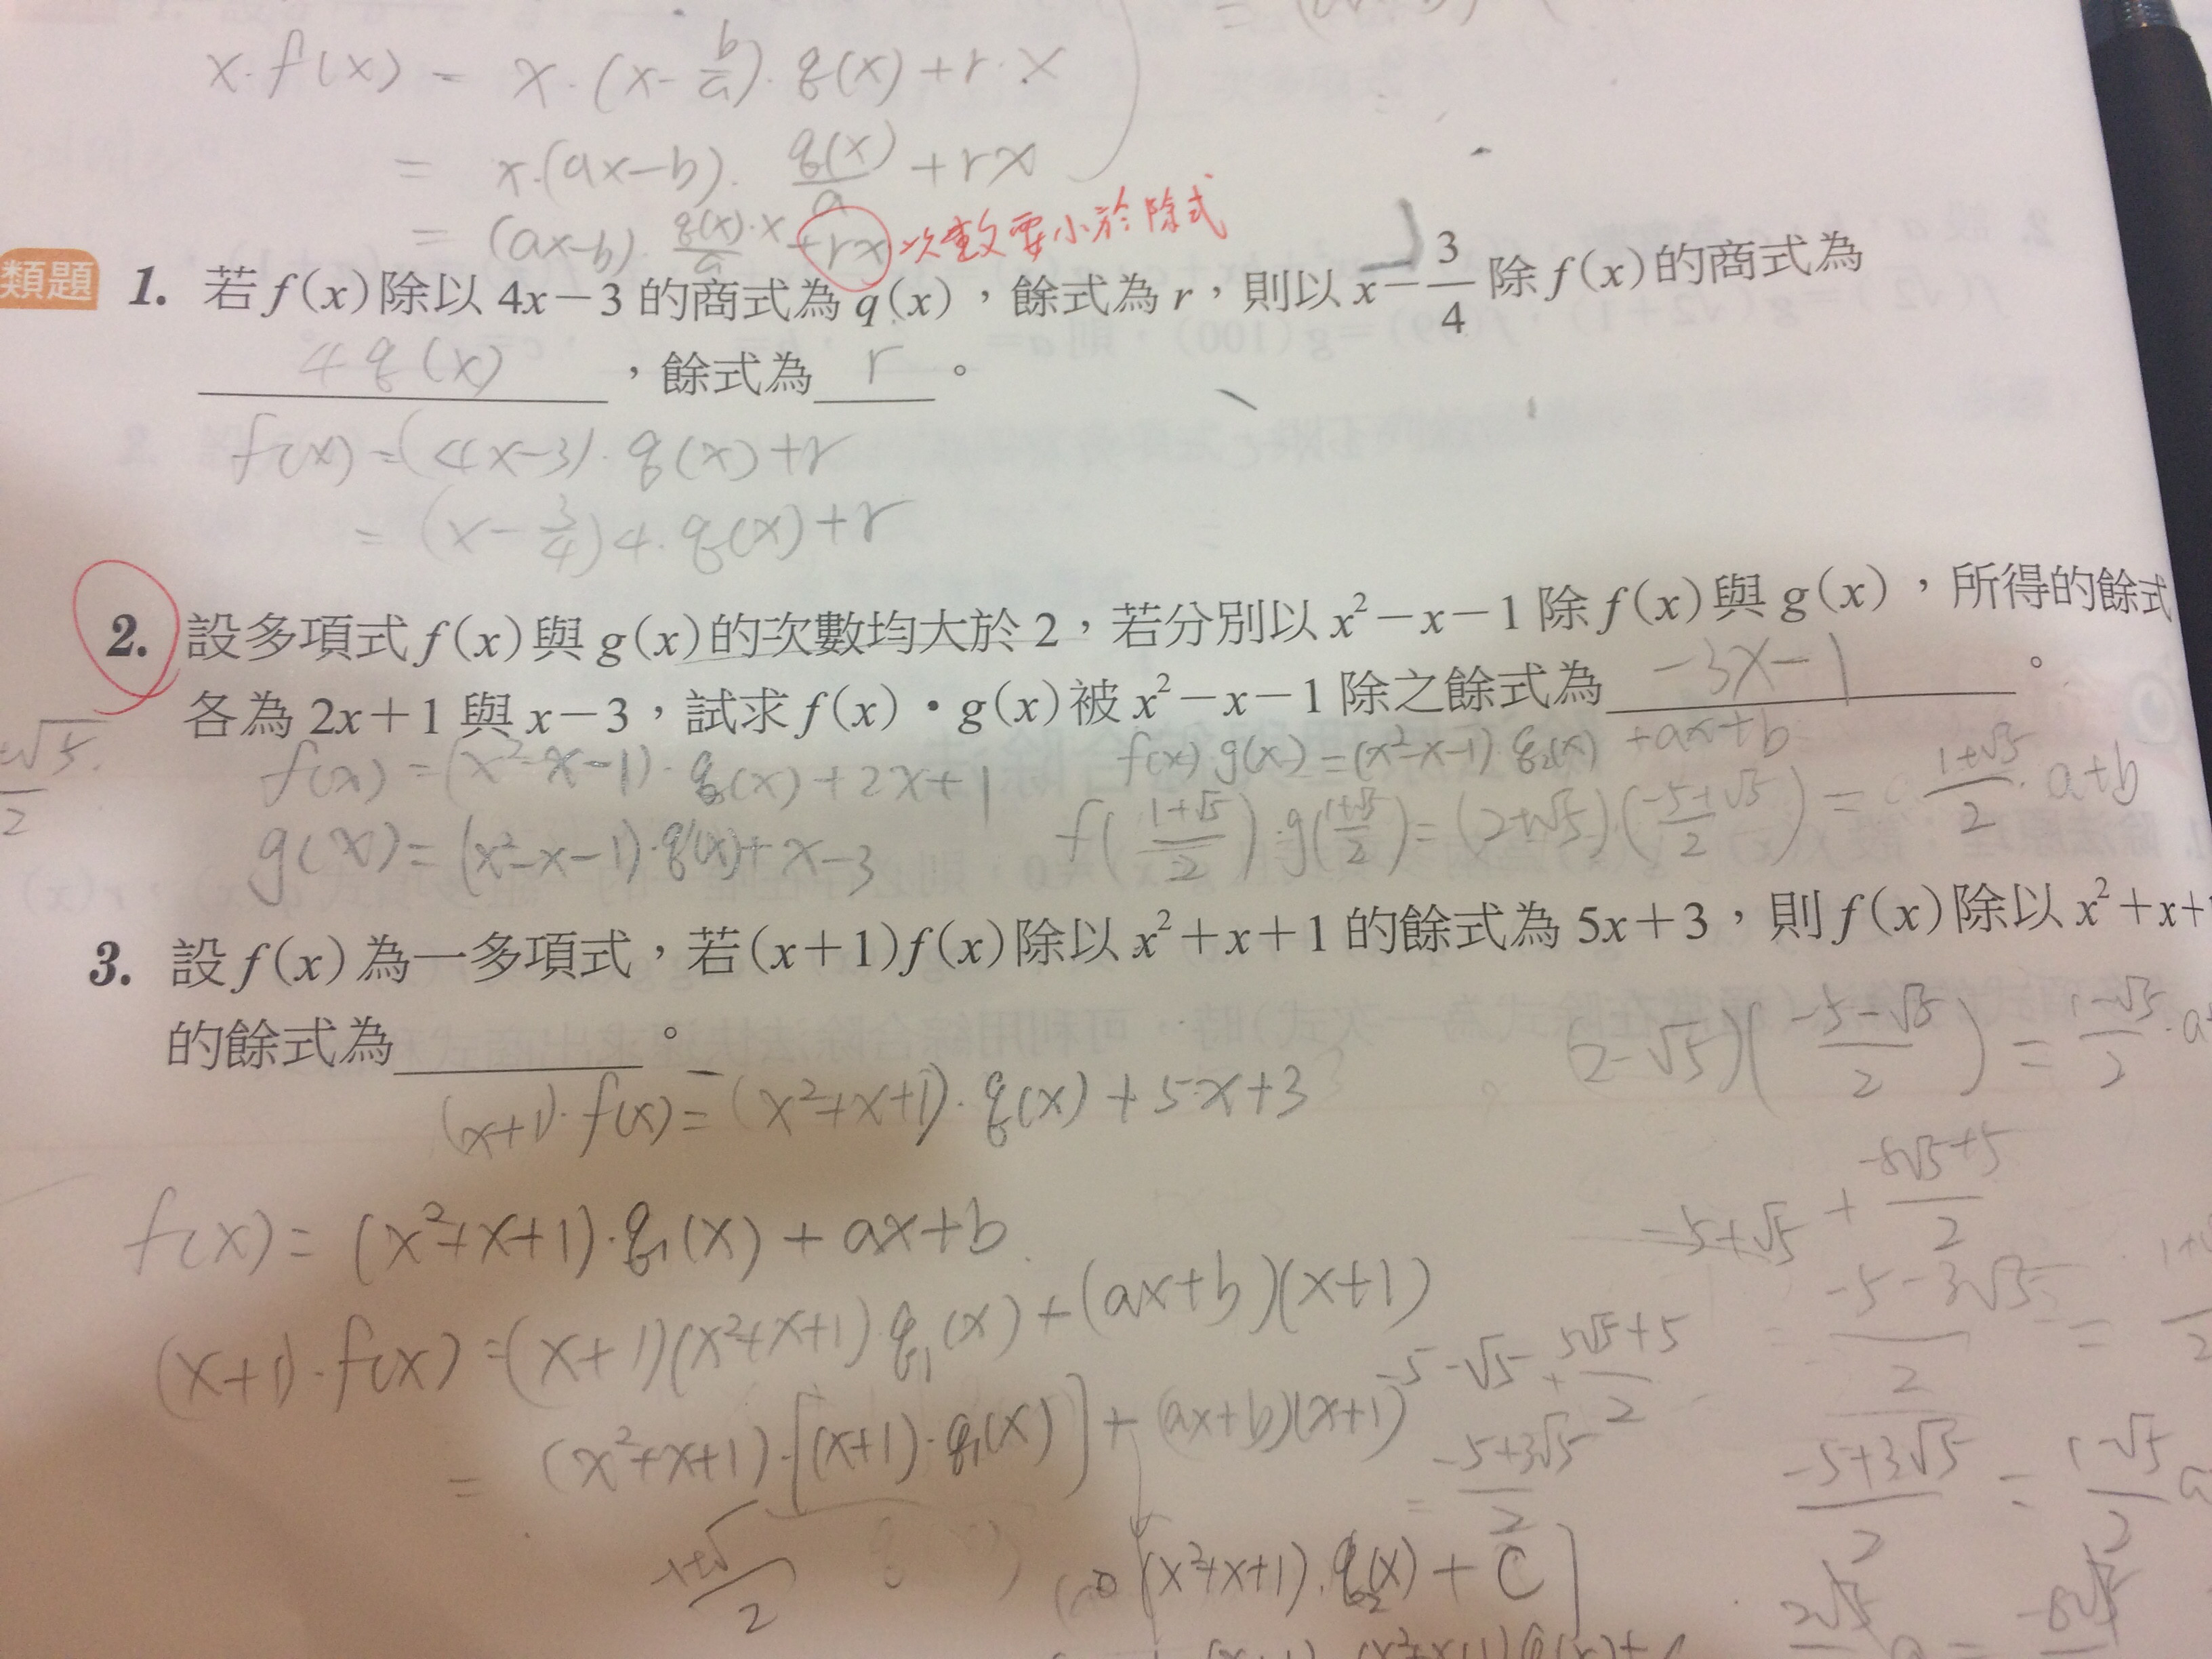 x·f(x) = x·(x-b/a)·q(x)+r·x
= x·(ax-b)·q(x)/a+rx
= (ax-b)·q(x)·x/a+rx 次數要小於除式
類題 1. 若f(x)除以4x-3的商式為q(x)，餘式為r，則以x-3/4除f(x)的商式為
4q(x)，餘式為r。
f(x)=(4x-3)·q(x)+r
=(x-3/4)4·q(x)+r
2. 設多項式f(x)與g(x)的次數均大於2，若分別以x²-x-1除f(x)與g(x)，所得的餘式
各為2x+1與x-3，試求f(x)·g(x)被x²-x-1除之餘式為-3x-1。
f(x)=(x²-x-1)·q(x)+2x+1
f(x)·g(x)=(x²-x-1)·q₂(x)+ax+b
g(x)=(x²-x-1)·q(x)+x-3
f(1+√5/2)·g(1+√5/2)=(2+√5)(-5+√5/2)=1+√5/2·a+b
3. 設f(x)為一多項式，若(x+1)f(x)除以x²+x+1的餘式為5x+3，則f(x)除以x²+x+
的餘式為＿＿＿。
(2-√5)(-5-√5/2)=1-√5/2·a
(x+1)·f(x)=(x²+x+1)·q(x)+5x+3
f(x)=(x²+x+1)·q₁(x)+ax+b
(x+1)·f(x)=(x+1)(x²+x+1)·q₁(x)+(ax+b)(x+1)
=(x²+x+1)·[(x+1)·q₁(x)]+(ax+b)(x+1)
-5-3√5/2 =
-5+3√5/2
-5+3√5/2 = 1-√5/2
(x²+x+1)·q₂(x)+C]